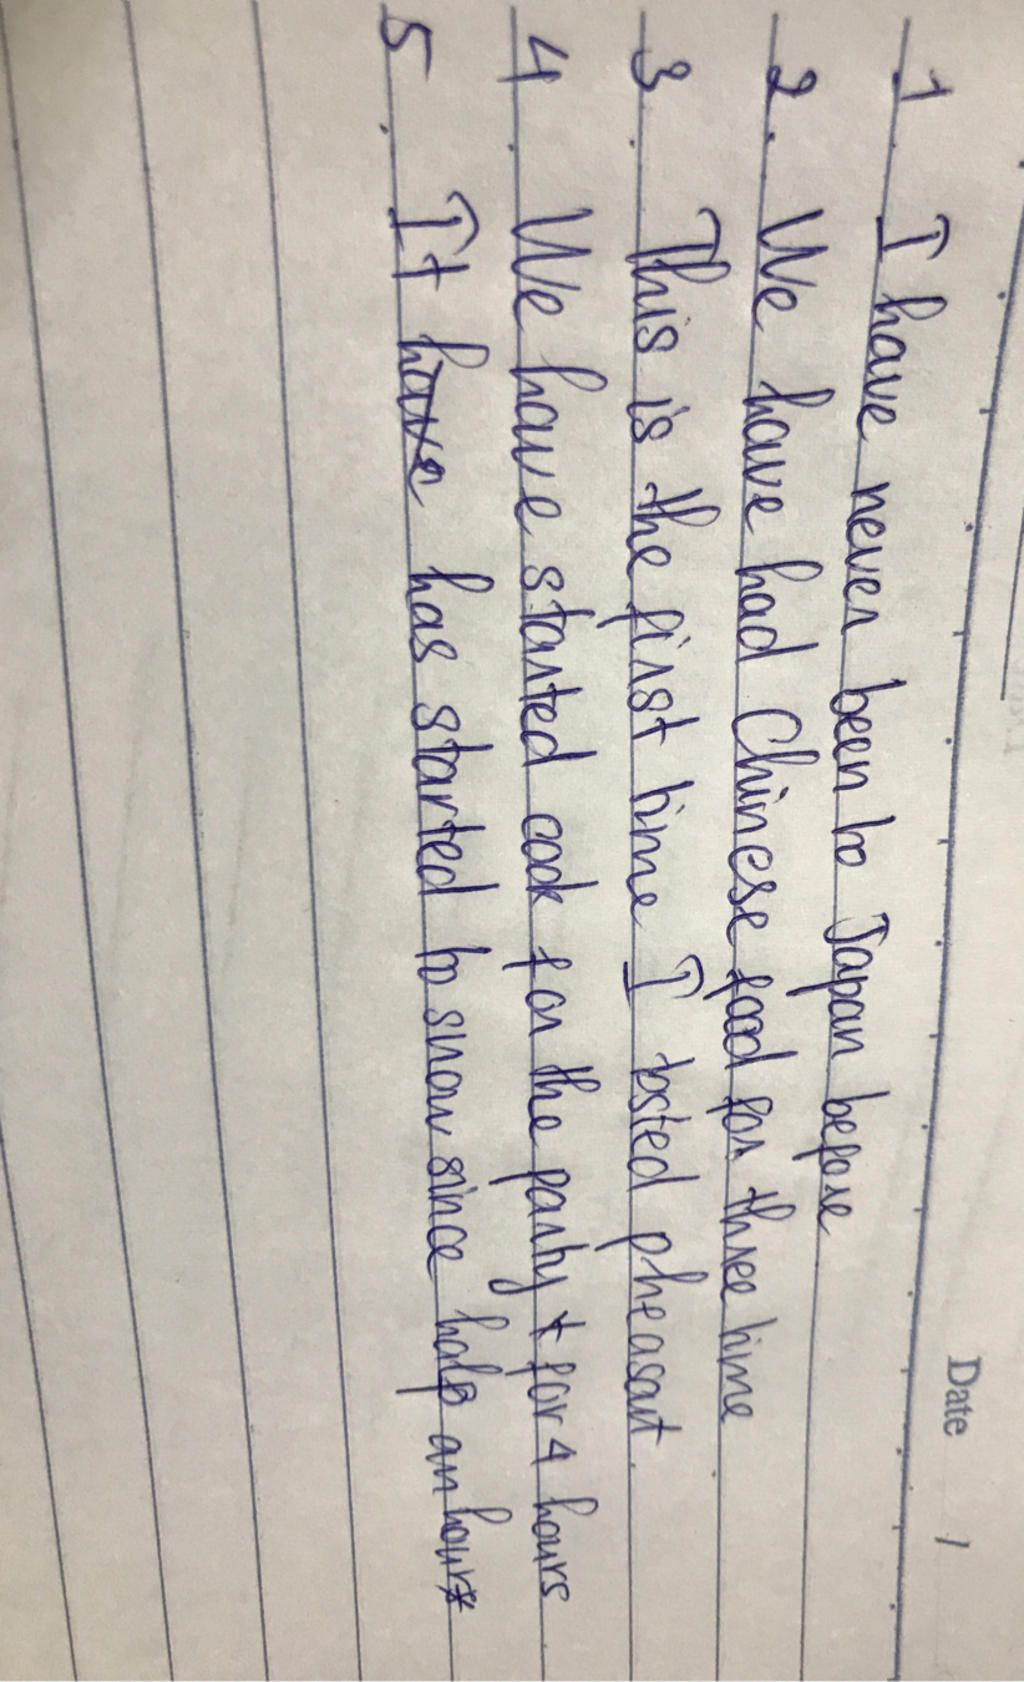 Date /
1 I have never been to Japan before
2. We have had Chinese food for three time
3. This is the first time I tasted pheasant.
4. We have started cook for the party + for 4 hours
5. It have has started to snow since half an hour